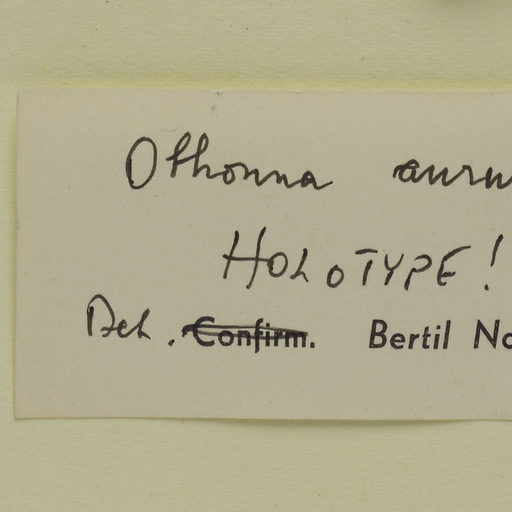 Othonna auru
HOLOTYPE!
Det. Confirm. Bertil No